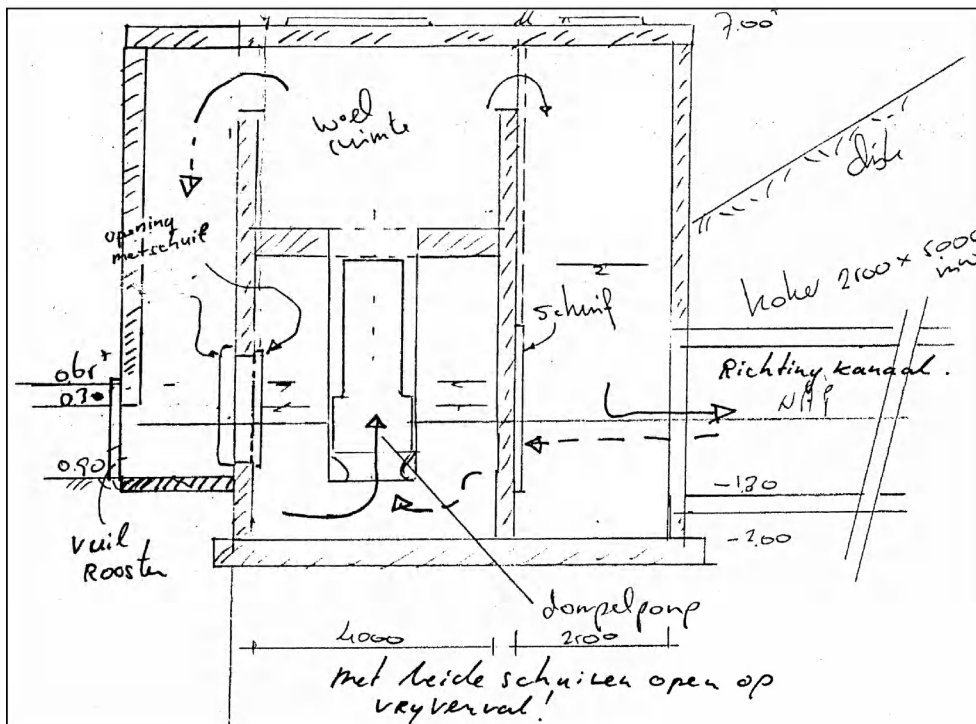 7.00
woel
ruimte
opening
met schuif
schuif
dijk
koker 2500 x 5000
Richting kanaal.
0.30
0.90
-1.80
-2.00
vuil
Rooster
dompelpomp
4000
2500
met beide schuiven open op
vryverval!